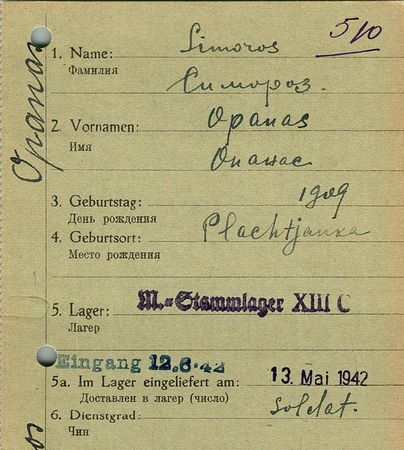 510
1. Name: Simoros
Фамилия
Симороз.
2. Vornamen: Opanas
Имя
Опанас
3. Geburtstag: 1909
День рождения
4. Geburtsort: Plachtjanka
Место рождения
5. Lager: M.=Stammlager XIII C
Лагер
Eingang 12.6.42
5a. Im Lager eingeliefert am: 13. Mai 1942
Доставлен в лагер (число)
6. Dienstgrad: Soldat.
Чин
Opanas
os